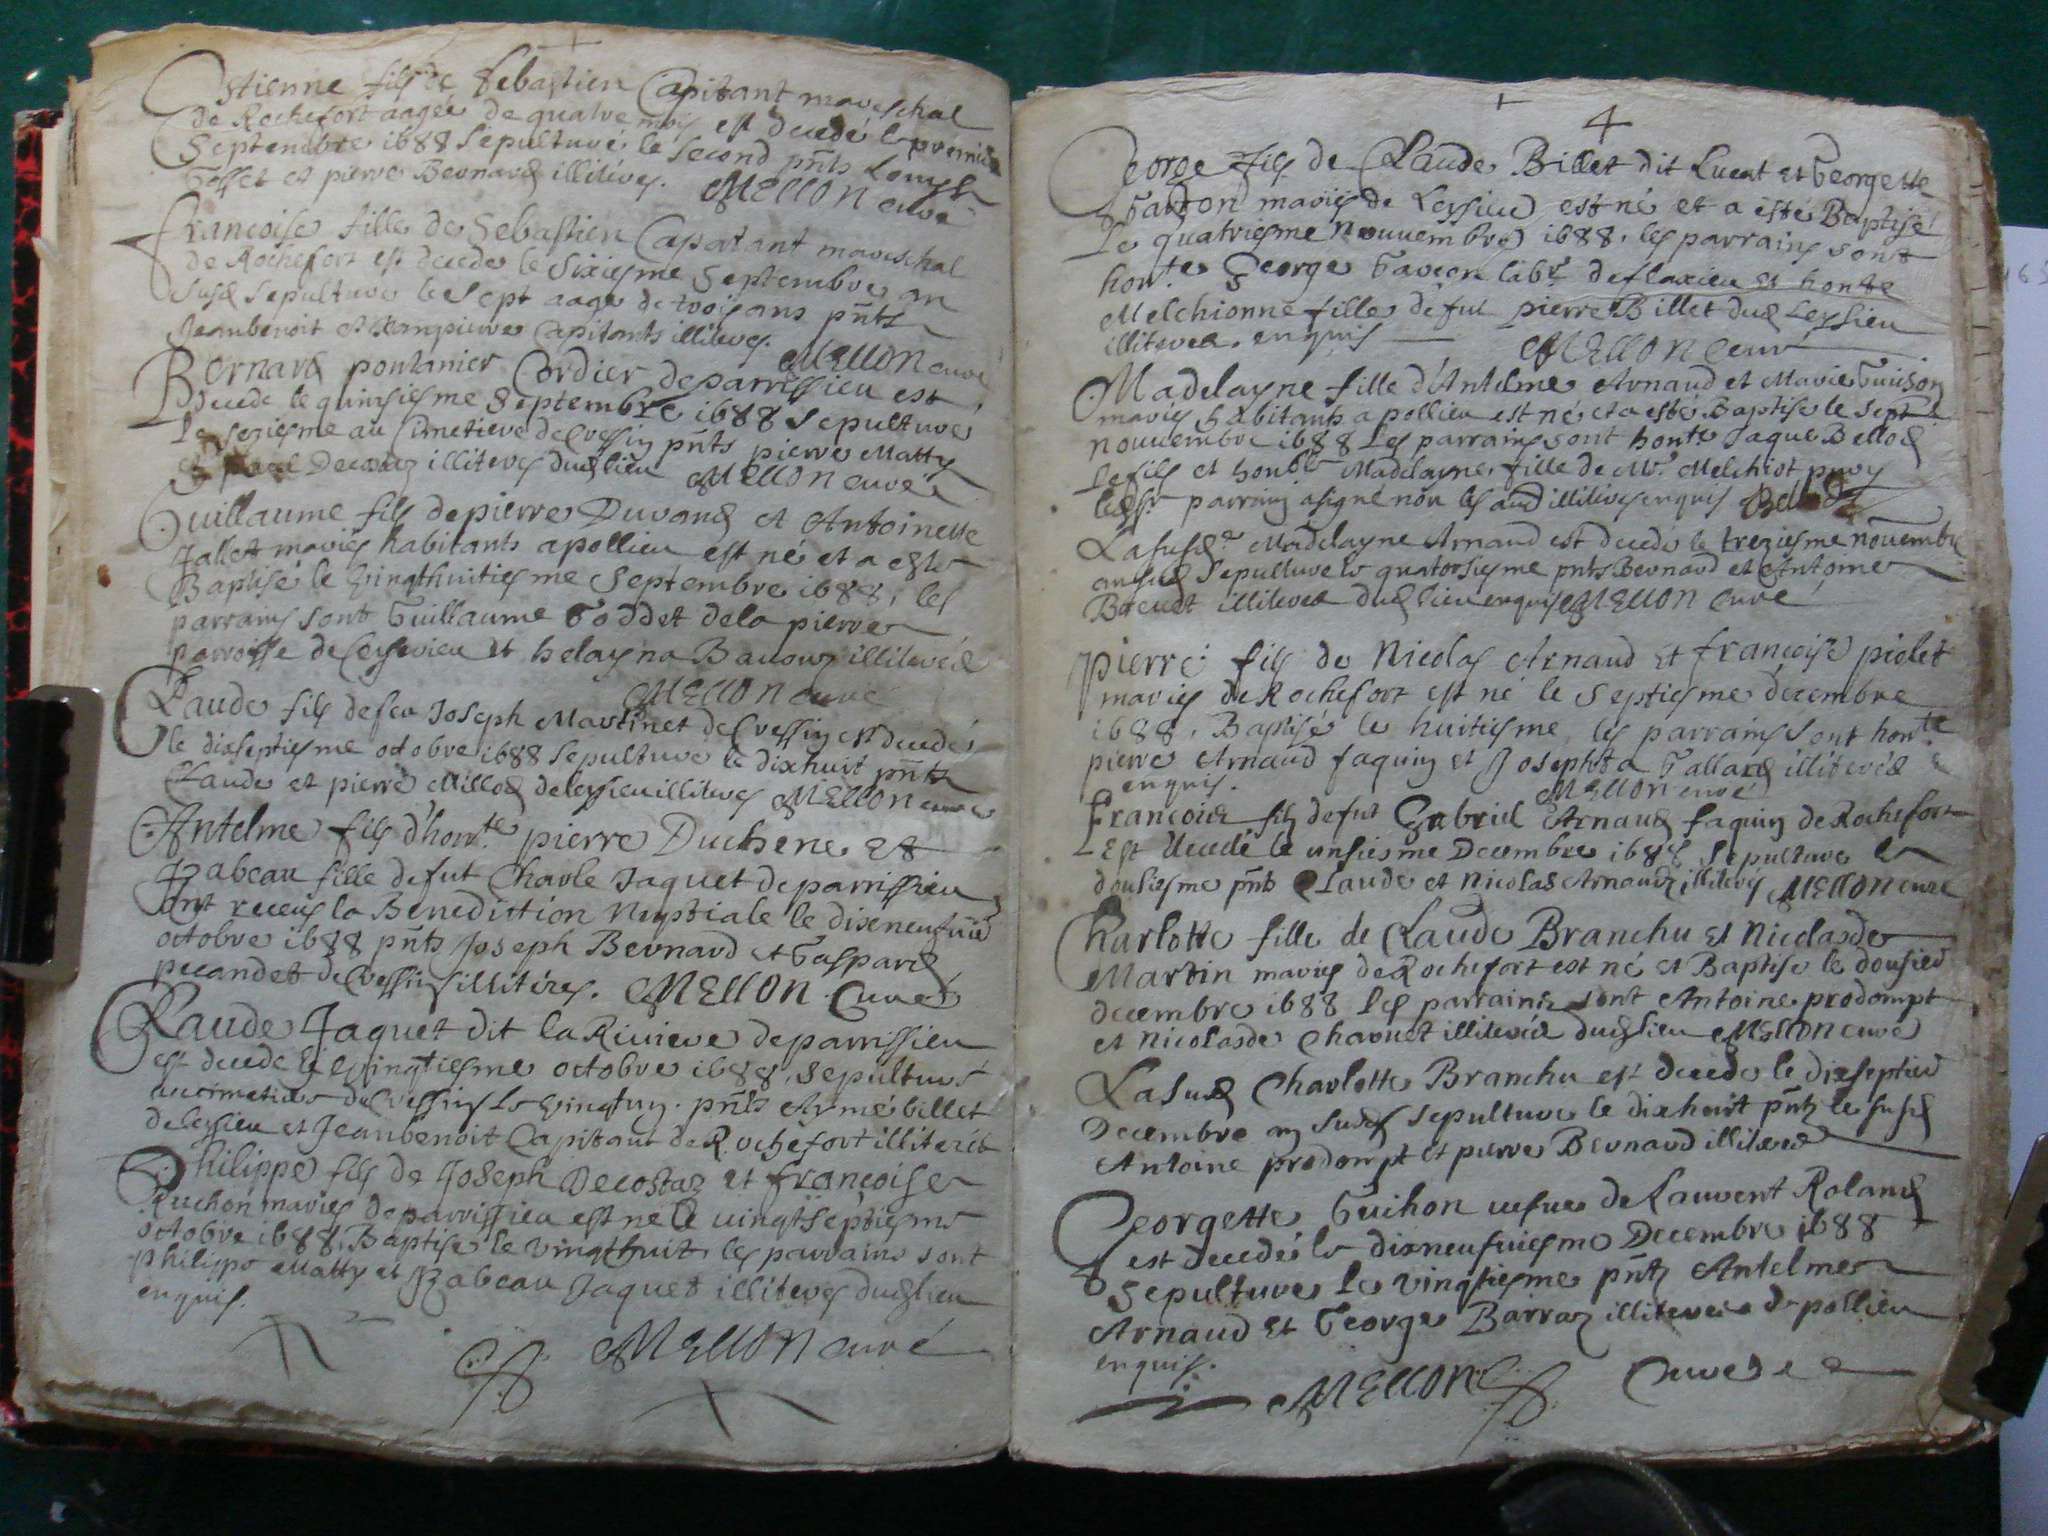 Estienne fils de Sebastien Capitant mareschal
de Rochefort aagée de quatre mois est decedé le premier
Septembre 1688 sepulturé le second pñts Louys
et pierre Bernard illiterés. MELLON curé
francoise fille de Sebastien Capatant mareschal
de Rochefort est decede le sixiesme Septembre an
susd sepulture le sept aage de trois ans pñts
Jeanbenoit et Jeanpierre Capitants illiterés.
MELLON curé
Bernard pontanier Cordier de parrissieu est
decede le quinsiesme Septembre 1688 sepulture
le seziesme au Cimetiere de Cressin pñts pierre Matty
et Decostaz illiteres dudlieu MELLON curé
Guillaume fils de pierre Durand et Antoinette
Jallet mariés habitants a pollieu est né et a esté
Baptisé le vingthuitiesme Septembre 1688, les
parrains sont Guillaume Goddet dela pierre
parroisse de Ceyserieu et helayna Barouz illiteréé
MELLON curé
Claude fils de feu Joseph Martinet de Cressin est decedé
le dixseptiesme octobre 1688 sepulture le dixhuit pñts
Claude et pierre Millod de leyssieu illiteres MELLON curé
Antelme fils d'hon.te pierre Duchene et
Izabeau fille defut Charle Jaquet de parrissieu
ont receus la Benediction Nuptiale le dixneufuie
octobre 1688 pñts Joseph Bernard et Gaspard
pecandet de Cressin illitéres. MELLON Curé
Claude Jaquet dit la Riviere de parrissieu
est decede le vingtiesme octobre 1688, sepulturé
au cimetiere de Cressin le vingtun. pñts Aimé billet
de leyssieu et Jeanbenoit Capitant de Rochefort illiterés
Philippe fils de Joseph Decostaz et francoise
Ruchon mariés de parrissieu est né le vingtseptiesme
octobre 1688, Baptise le vingthuit les parrains sont
philippe Matty et Izabeau Jaquet illiteres dudlieu
enquis.
MELLON curé
4
George fils de Claude Billet dit Lucat et Georgette
Gavon mariés de Leyssieu est né et a esté Baptisé
le quatriesme Nouuembre 1688, les parrains sont
hon.te George Gavion lab.r de flaxieu et honte
Melchionne fille defut pierre Billet dud Leyssieu
illiterés enquis MELLON curé
Madelayne fille d'Antelme Arnaud et Marie Guison
mariés habitants a pollieu est né et a esté Baptise le sept
nouuembre 1688 les parrains sont honte Jaque Bellod
le fils et honble Madelayne fille de Mr. Melchiot
led Sr parrain a signé non les aud illiteres enquis Bellod
La susd.e Madelayne Arnaud est decedé le treziesme nouembre
an susd sepulture le quatorsiesme pnts Bernard et Antome
Breuet illiteres dudlieu enquis MELLON Curé
pierre fils de Nicolas Arnaud et francoise piolet
mariés de Rochefort est né le Septiesme decembre
1688, Baptisé le huitiesme, les parrains sont honte
pierre Arnaud faquin et Josephta Gallard illiterés
enquis. MELLON curé
Francois fils defut Gabriel Arnaud faquin de Rochefort
est decedé le unsiesme Decembre 1688 sepulture le
dousiesme pñts Claude et Nicolas Arnaudz illiterés MELLON curé
Charlotte fille de Claude Branchu et Nicolarde
Martin mariés de Rochefort est né et Baptise le dousie
decembre 1688 les parrains sont Antoine prodompt
et Nicolarde Charuet illiterés dudlieu MELLON curé
La susd Charlotte Branchu est decede le dixseptie
Decembre an susd sepulture le dixhuit pñts le susd
Antoine prodompt et pierre Bernard illiteres
Georgette Guihon uefue de Laurent Roland
est decedé le dixneufuiesme Decembre 1688
sepulture le vingtiesme pñts Antelme
Arnaud et George Barraz illiteres de pollieu
enquis.
MELLON Curé